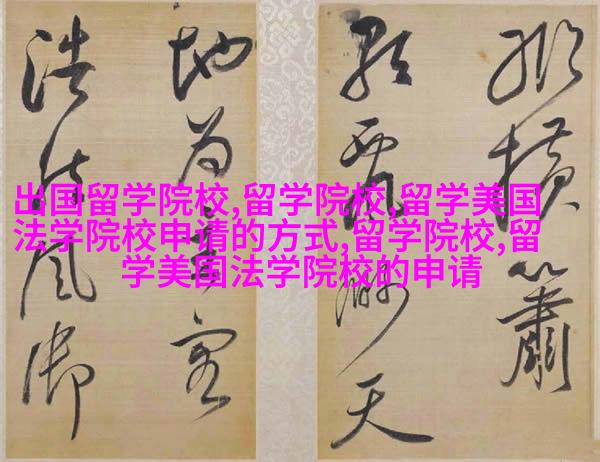 出国留学院校,留学院校,留学美国
法学院校申请的方式,留学院校,留
学美国法学院校的申请
横
天
地为
浩然风御